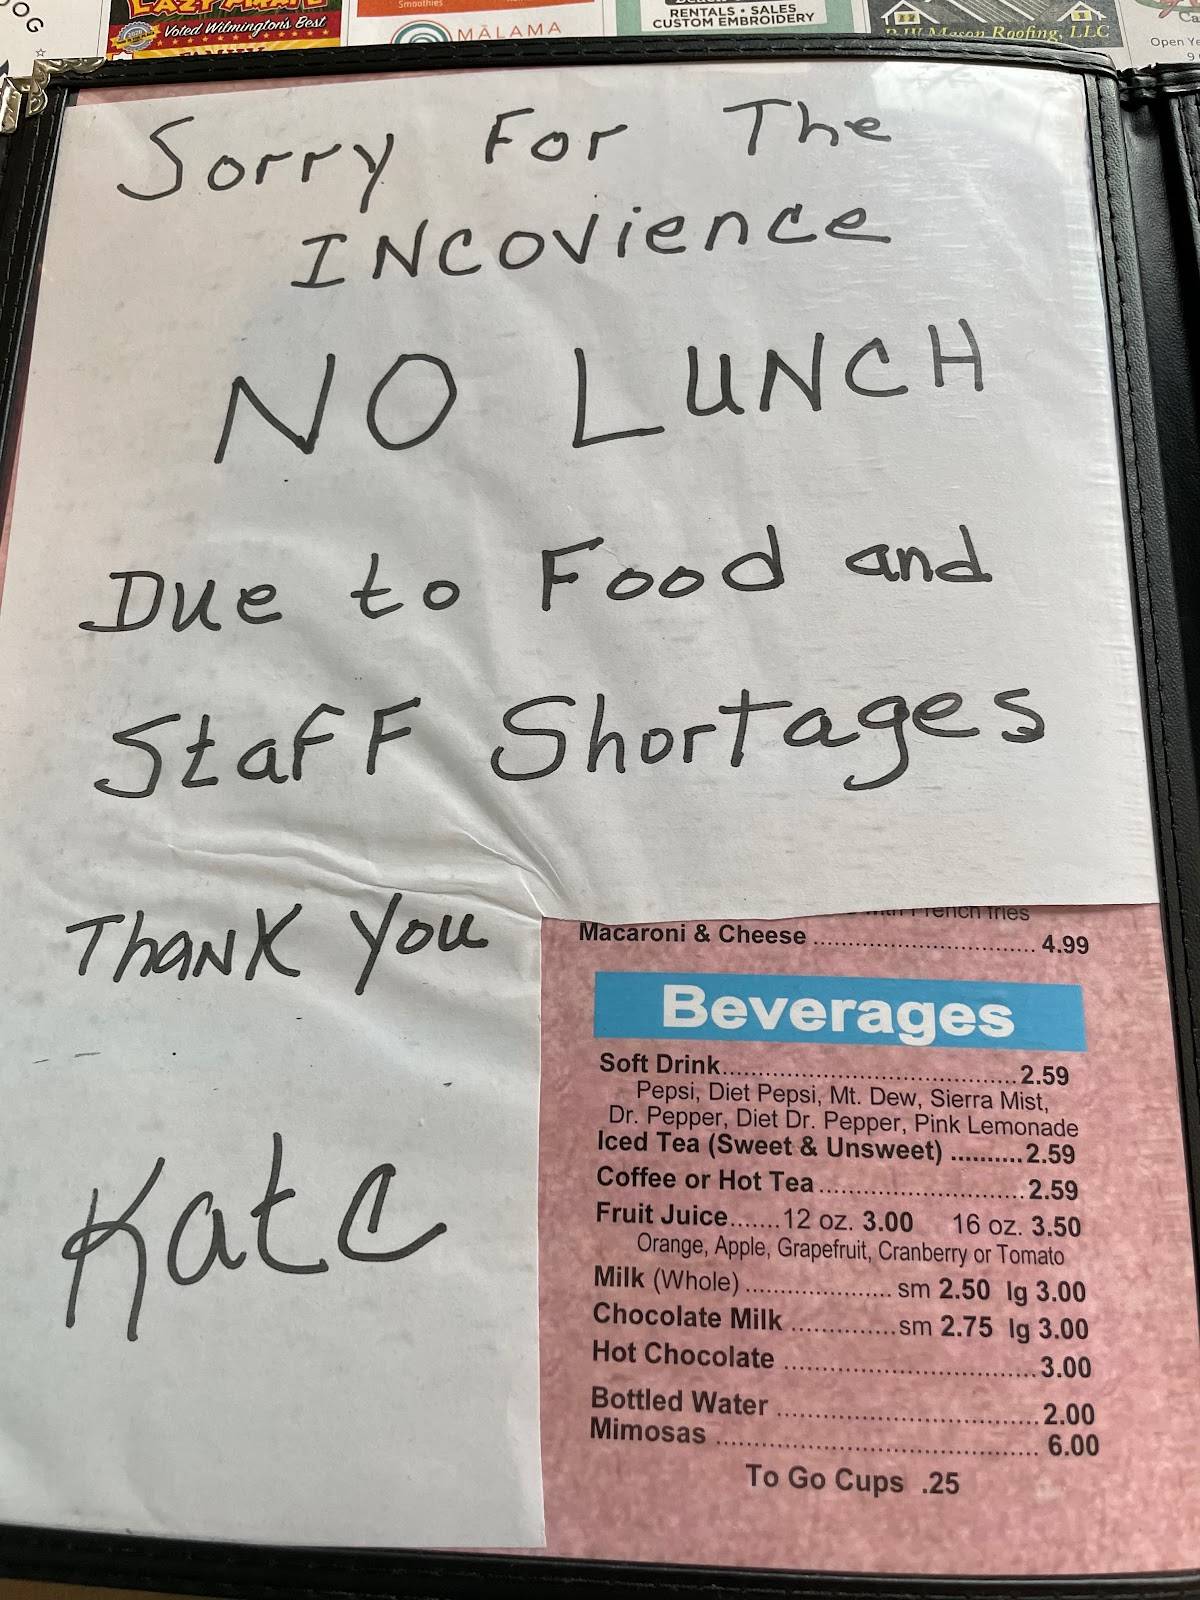 OG
LAZY PIRATE
Voted Wilmington's Best
Smoothies
MĀLAMA
RENTALS • SALES
CUSTOM EMBROIDERY
Mason Roofing, LLC
Open
Sorry For The
INCOVience
NO LUNCH
Due to Food and
Staff Shortages
Thank You
Kate
French fries
Macaroni & Cheese ................................ 4.99
Beverages
Soft Drink.......................................... 2.59
Pepsi, Diet Pepsi, Mt. Dew, Sierra Mist,
Dr. Pepper, Diet Dr. Pepper, Pink Lemonade
Iced Tea (Sweet & Unsweet) .......... 2.59
Coffee or Hot Tea ............................. 2.59
Fruit Juice....... 12 oz. 3.00 16 oz. 3.50
Orange, Apple, Grapefruit, Cranberry or Tomato
Milk (Whole) ..................... sm 2.50 lg 3.00
Chocolate Milk ............... sm 2.75 lg 3.00
Hot Chocolate .................................... 3.00
Bottled Water ..................................... 2.00
Mimosas .............................................. 6.00
To Go Cups .25